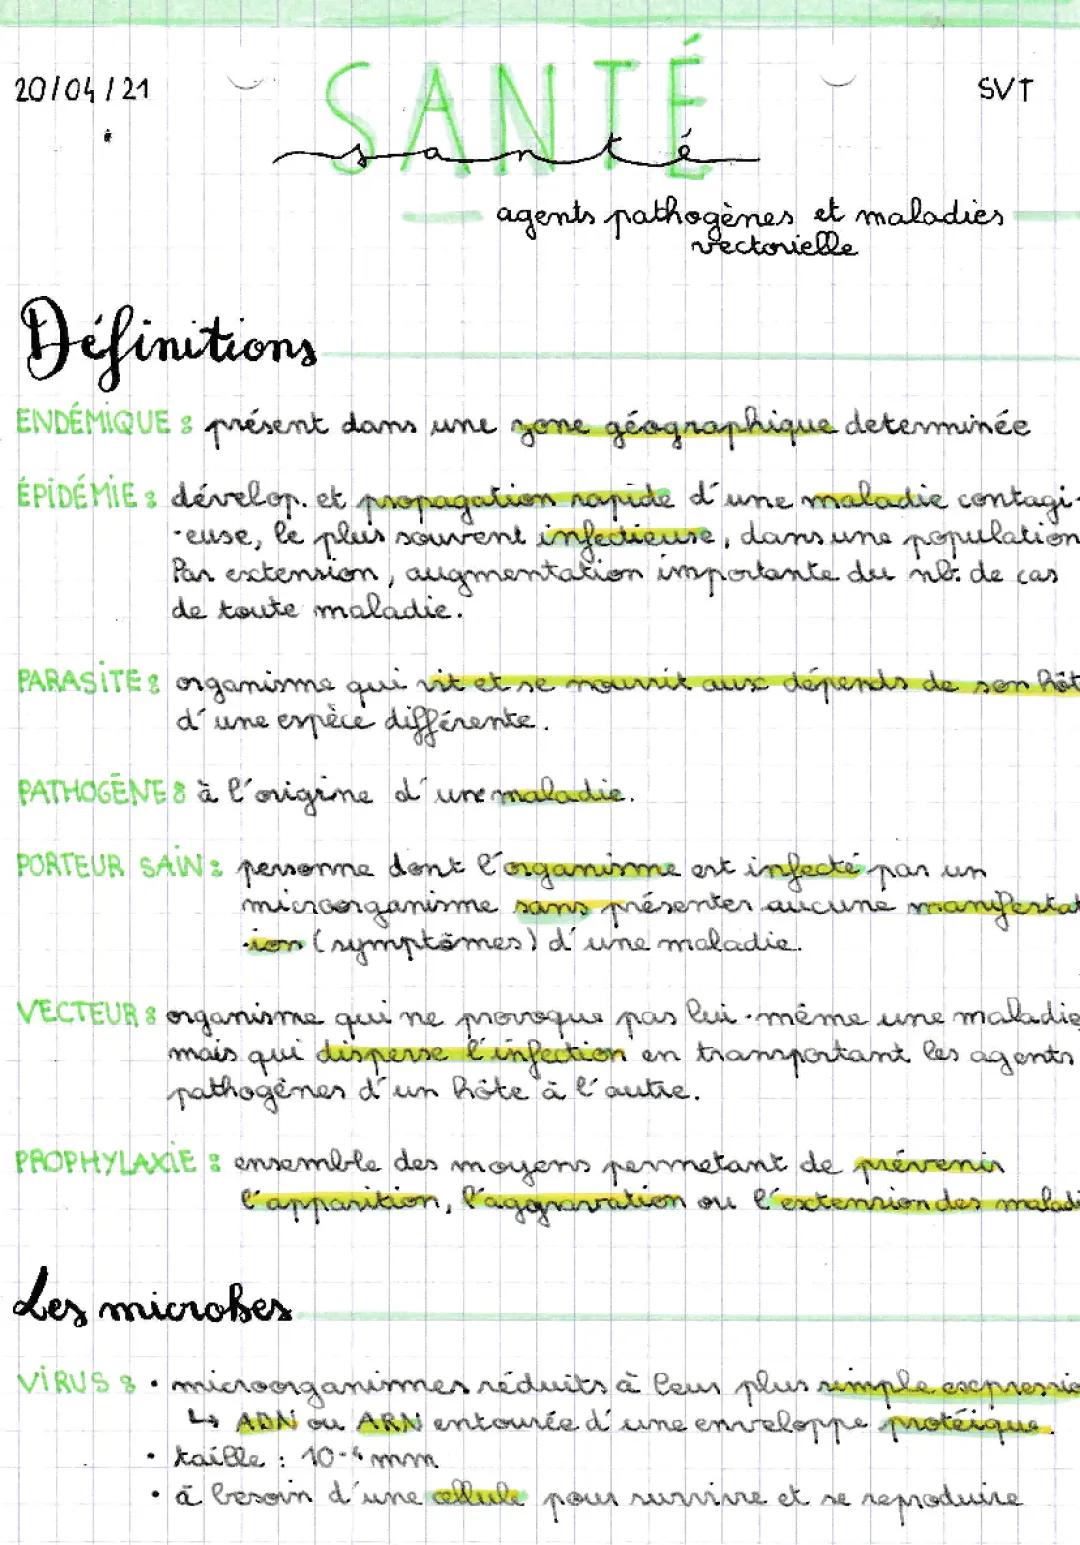 20/04/21
SANTÉ
SVT
santé
agents pathogènes et maladies
vectorielle
Définitions
ENDÉMIQUE : présent dans une zone géographique determinée
ÉPIDÉMIE : dévelop. et propagation rapide d'une maladie contagi-
-euse, le plus souvent infectieuse, dans une population
Par extension, augmentation importante du nb. de cas
de toute maladie.
PARASITE : organisme qui vit et se nourrit aux dépends de son hôt
d'une espèce différente.
PATHOGÈNE : à l'origine d'une maladie.
PORTEUR SAIN : personne dont l'organisme est infecté par un
microorganisme sans présenter aucune manifestat
-ion (symptômes) d'une maladie.
VECTEUR : organisme qui ne provoque pas lui-même une maladie
mais qui disperse l'infection en transportant les agents
pathogènes d'un hôte à l'autre.
PROPHYLAXIE : ensemble des moyens permetant de prévenir
l'apparition, l'aggravation ou l'extension des maladi
Les microbes
VIRUS : • microorganismes réduits à leur plus simple expressio
↳ ADN ou ARN entourée d'une enveloppe protéique.
• taille : 10-4 mm
• à besoin d'une cellule pour survivre et se reproduire